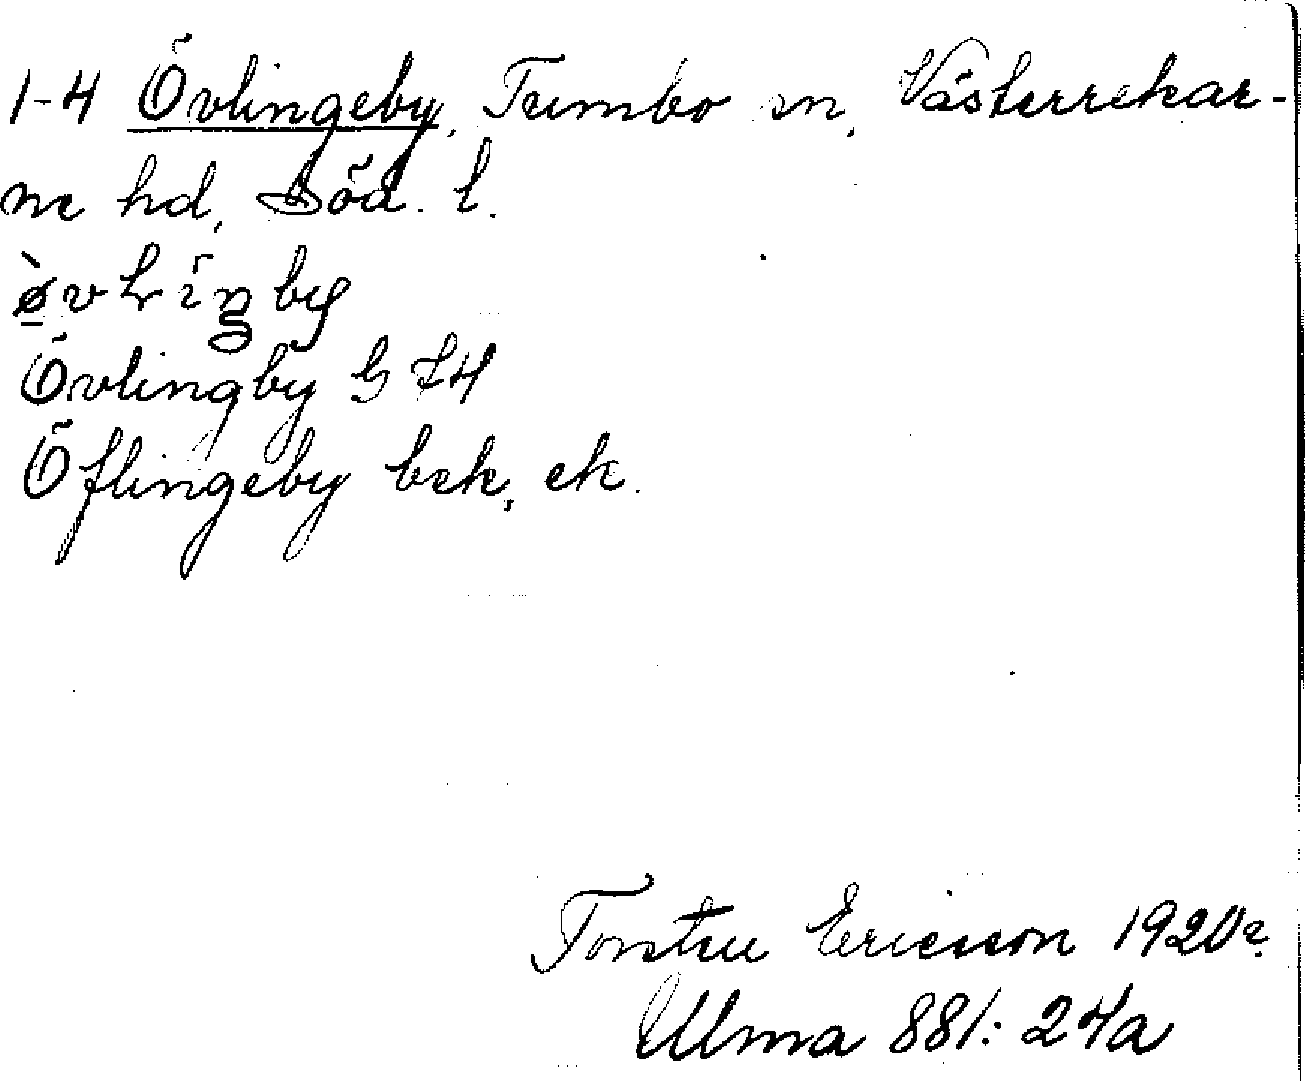 1-4 Övlingeby, Tumbo sn, Västerrekar-
ne hd, Söd. l.
Övlingby G 74
Öflingeby bek, ek.
Torsten Ericsson 1920?
Ulma 881: 24a